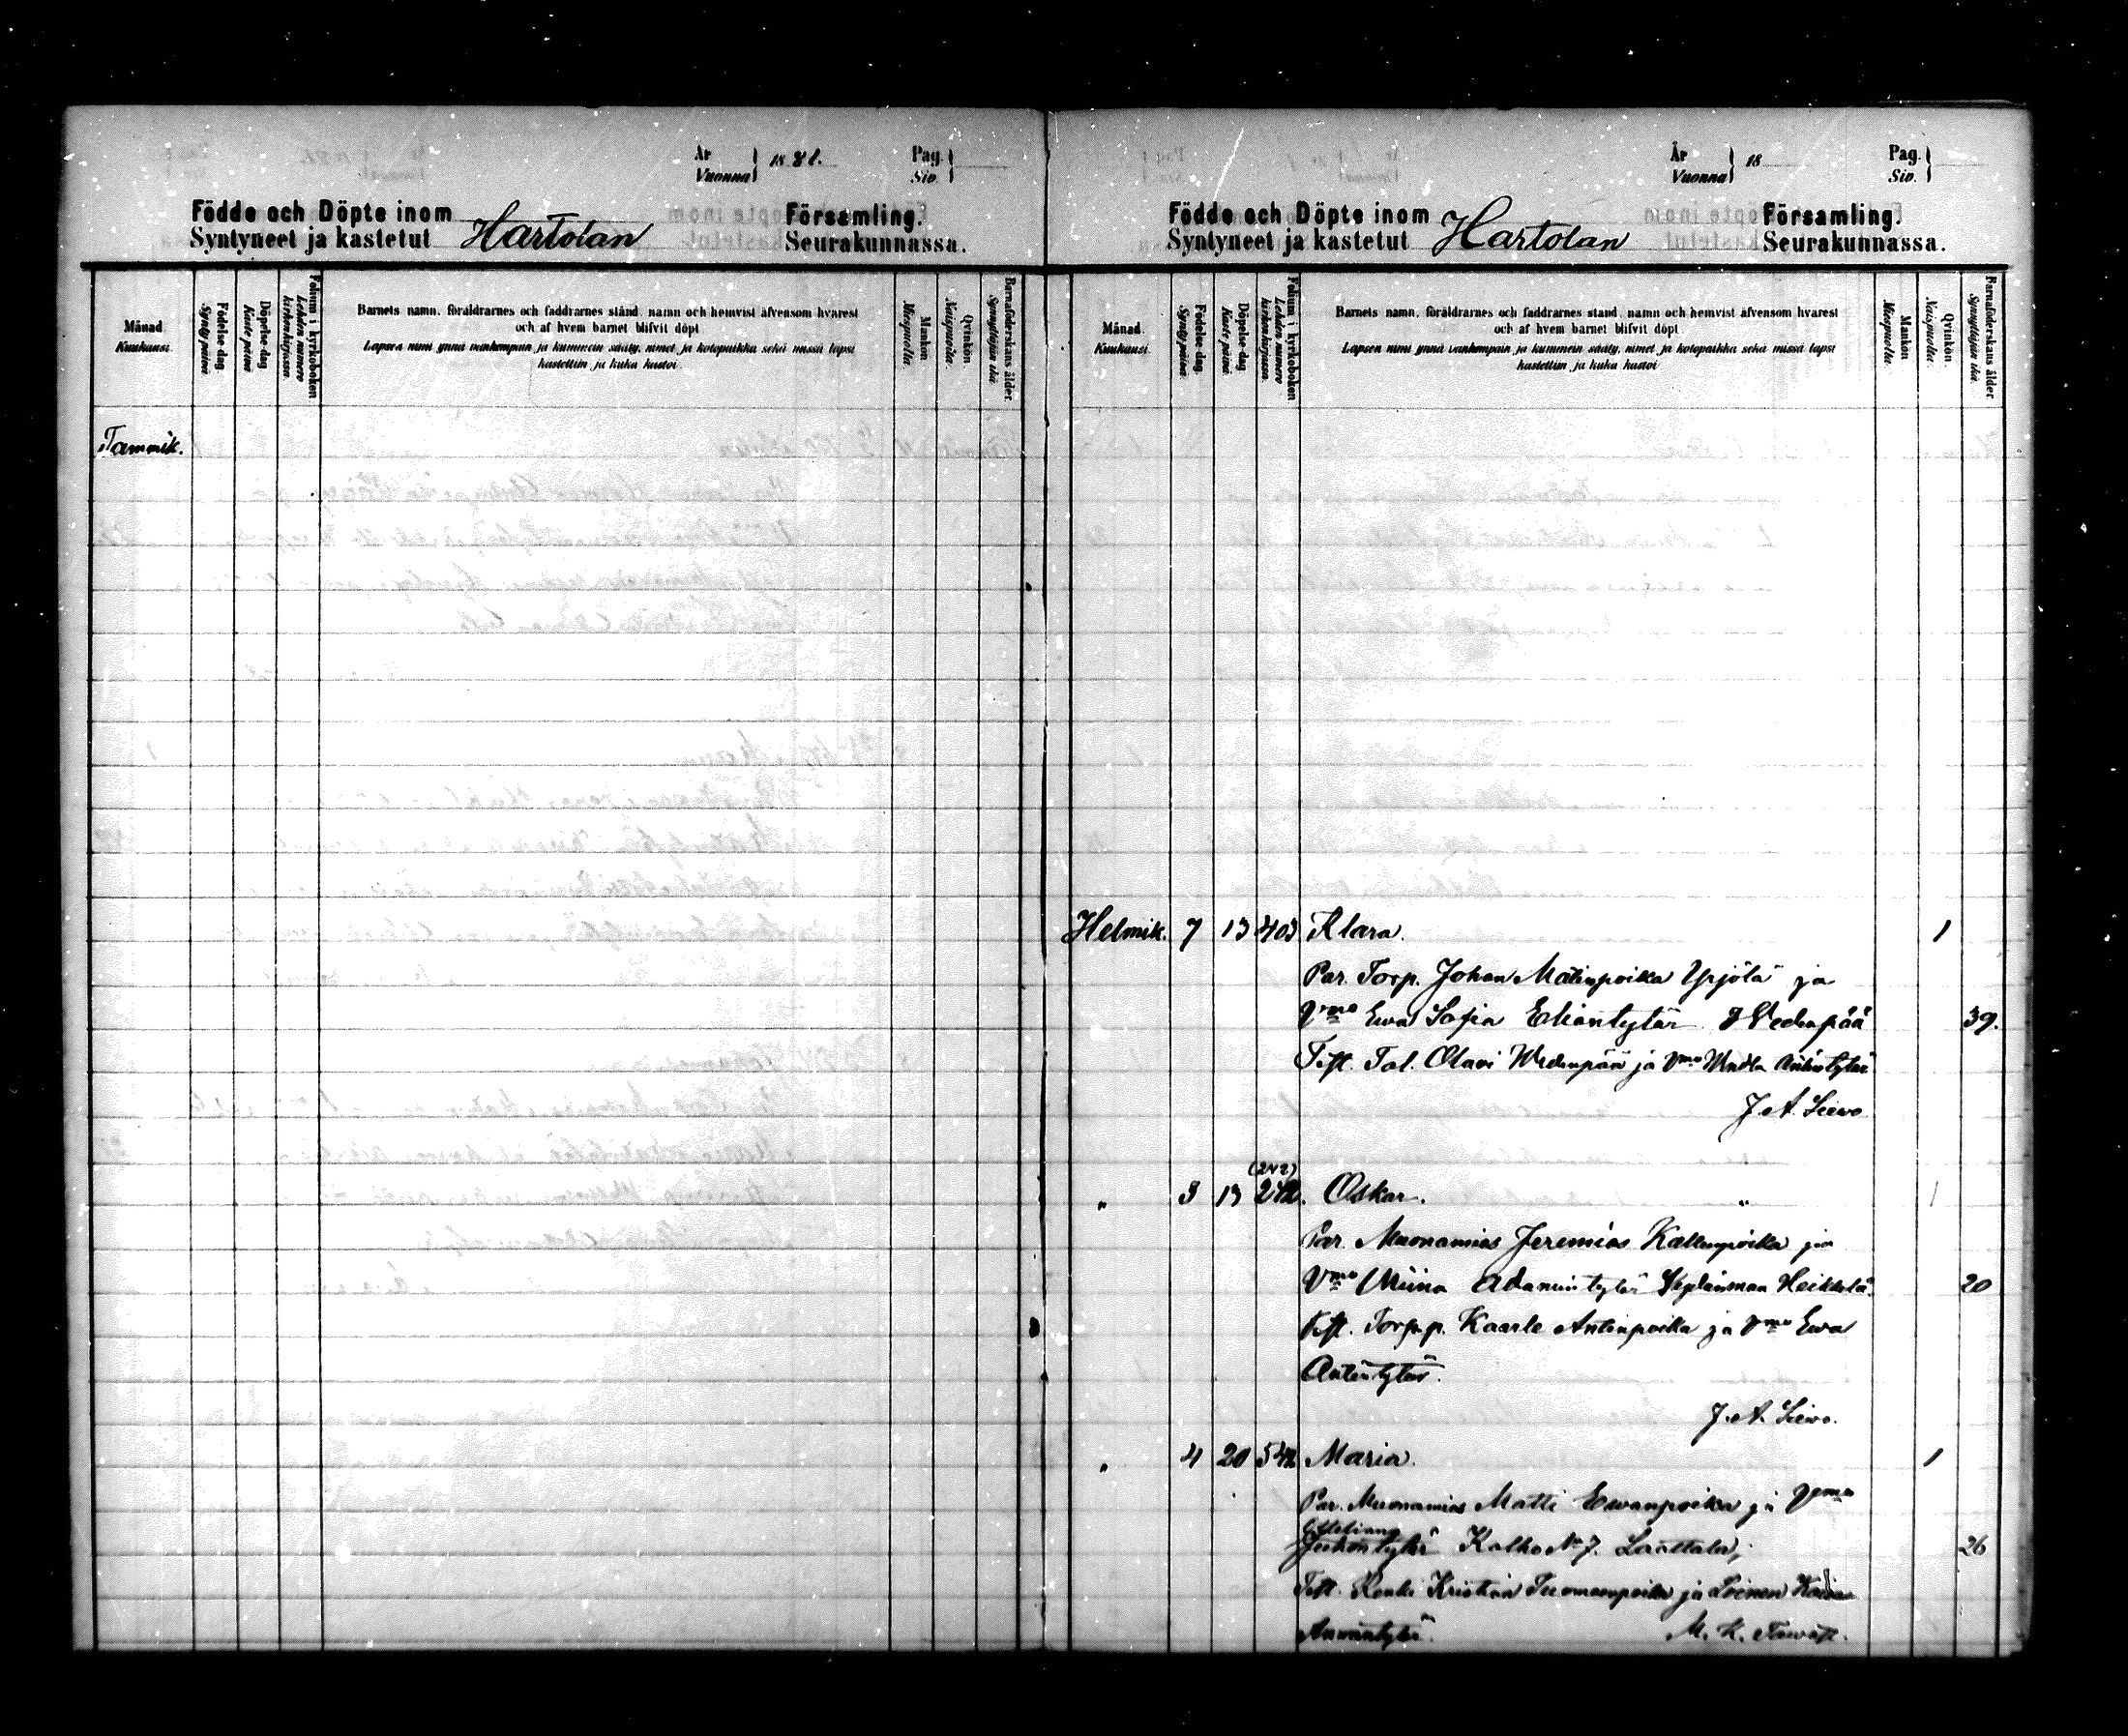 År
Vuonna } 1881.
Pag.
Siv.
Födde och Döpte inom
Syntyneet ja kastetut Hartolan Församling.
Seurakunnassa.
Månad.
Kuukausi.
Födelse-dag
Synty-päivä.
Döpelse-dag
Kaste-päivä
Folium i kyrkoboken
Lehden numero
kirkonkirjassa.
Barnets namn, föräldrarnes och faddrarnes stånd, namn och hemvist äfvensom hvarest
och af hvem barnet blifvit döpt
Lapsen nimi ynnä vanhempain ja kummein sääty, nimet ja kotopaikka sekä missä lapsi
kastettiin ja kuka kastoi
Mankön
Miespuolia.
Qvinkön.
Naispuolia.
Barnaföderskans ålder
Synnyttäjän ikä.
Tammik.
År
Vuonna } 18
Pag.
Siv.
Födde och Döpte inom
Syntyneet ja kastetut Hartolan Församling.
Seurakunnassa.
Månad.
Kuukausi.
Födelse-dag
Synty-päivä.
Döpelse-dag
Kaste-päivä.
Folium i kyrkoboken
Lehden numero
kirkonkirjassa.
Barnets namn, föräldrarnes och faddrarnes stånd, namn och hemvist äfvensom hvarest
och af hvem barnet blifvit döpt.
Lapsen nimi ynnä vanhempain ja kummein sääty, nimet ja kotopaikka sekä missä lapsi
kastettiin ja kuka kastoi
Mankön
Miespuolia.
Qvinkön.
Naispuolia.
Barnaföderskans ålder
Synnyttäjän ikä.
Helmik. 7 13 403 Klara. 1
Par. Torp. Johan Matinpoika Yrjölä ja
Vmo Ewa Sofia Elianтytär 39.
Test. Tal. Olavi ja Vmo
J. A. Siewo
(242)
" 3 13 242. Oskar. 1
Par. Muonamies Jeremias Kallenpoika ja
Vmo Miina Adamintytär Heikkilä. 20
Test. Torp. p. Kaarle Antinpoika ja Vmo Ewa
Antintytär.
J. A. Siewo.
" 4 20 542 Maria. 1
Par. Muonamies Matti Ewanpoika ja Vmo
Juhontytär Kalho No 7. 26
Test. Renki Kristian Tuomaanpoika ja Loinen
M. K.